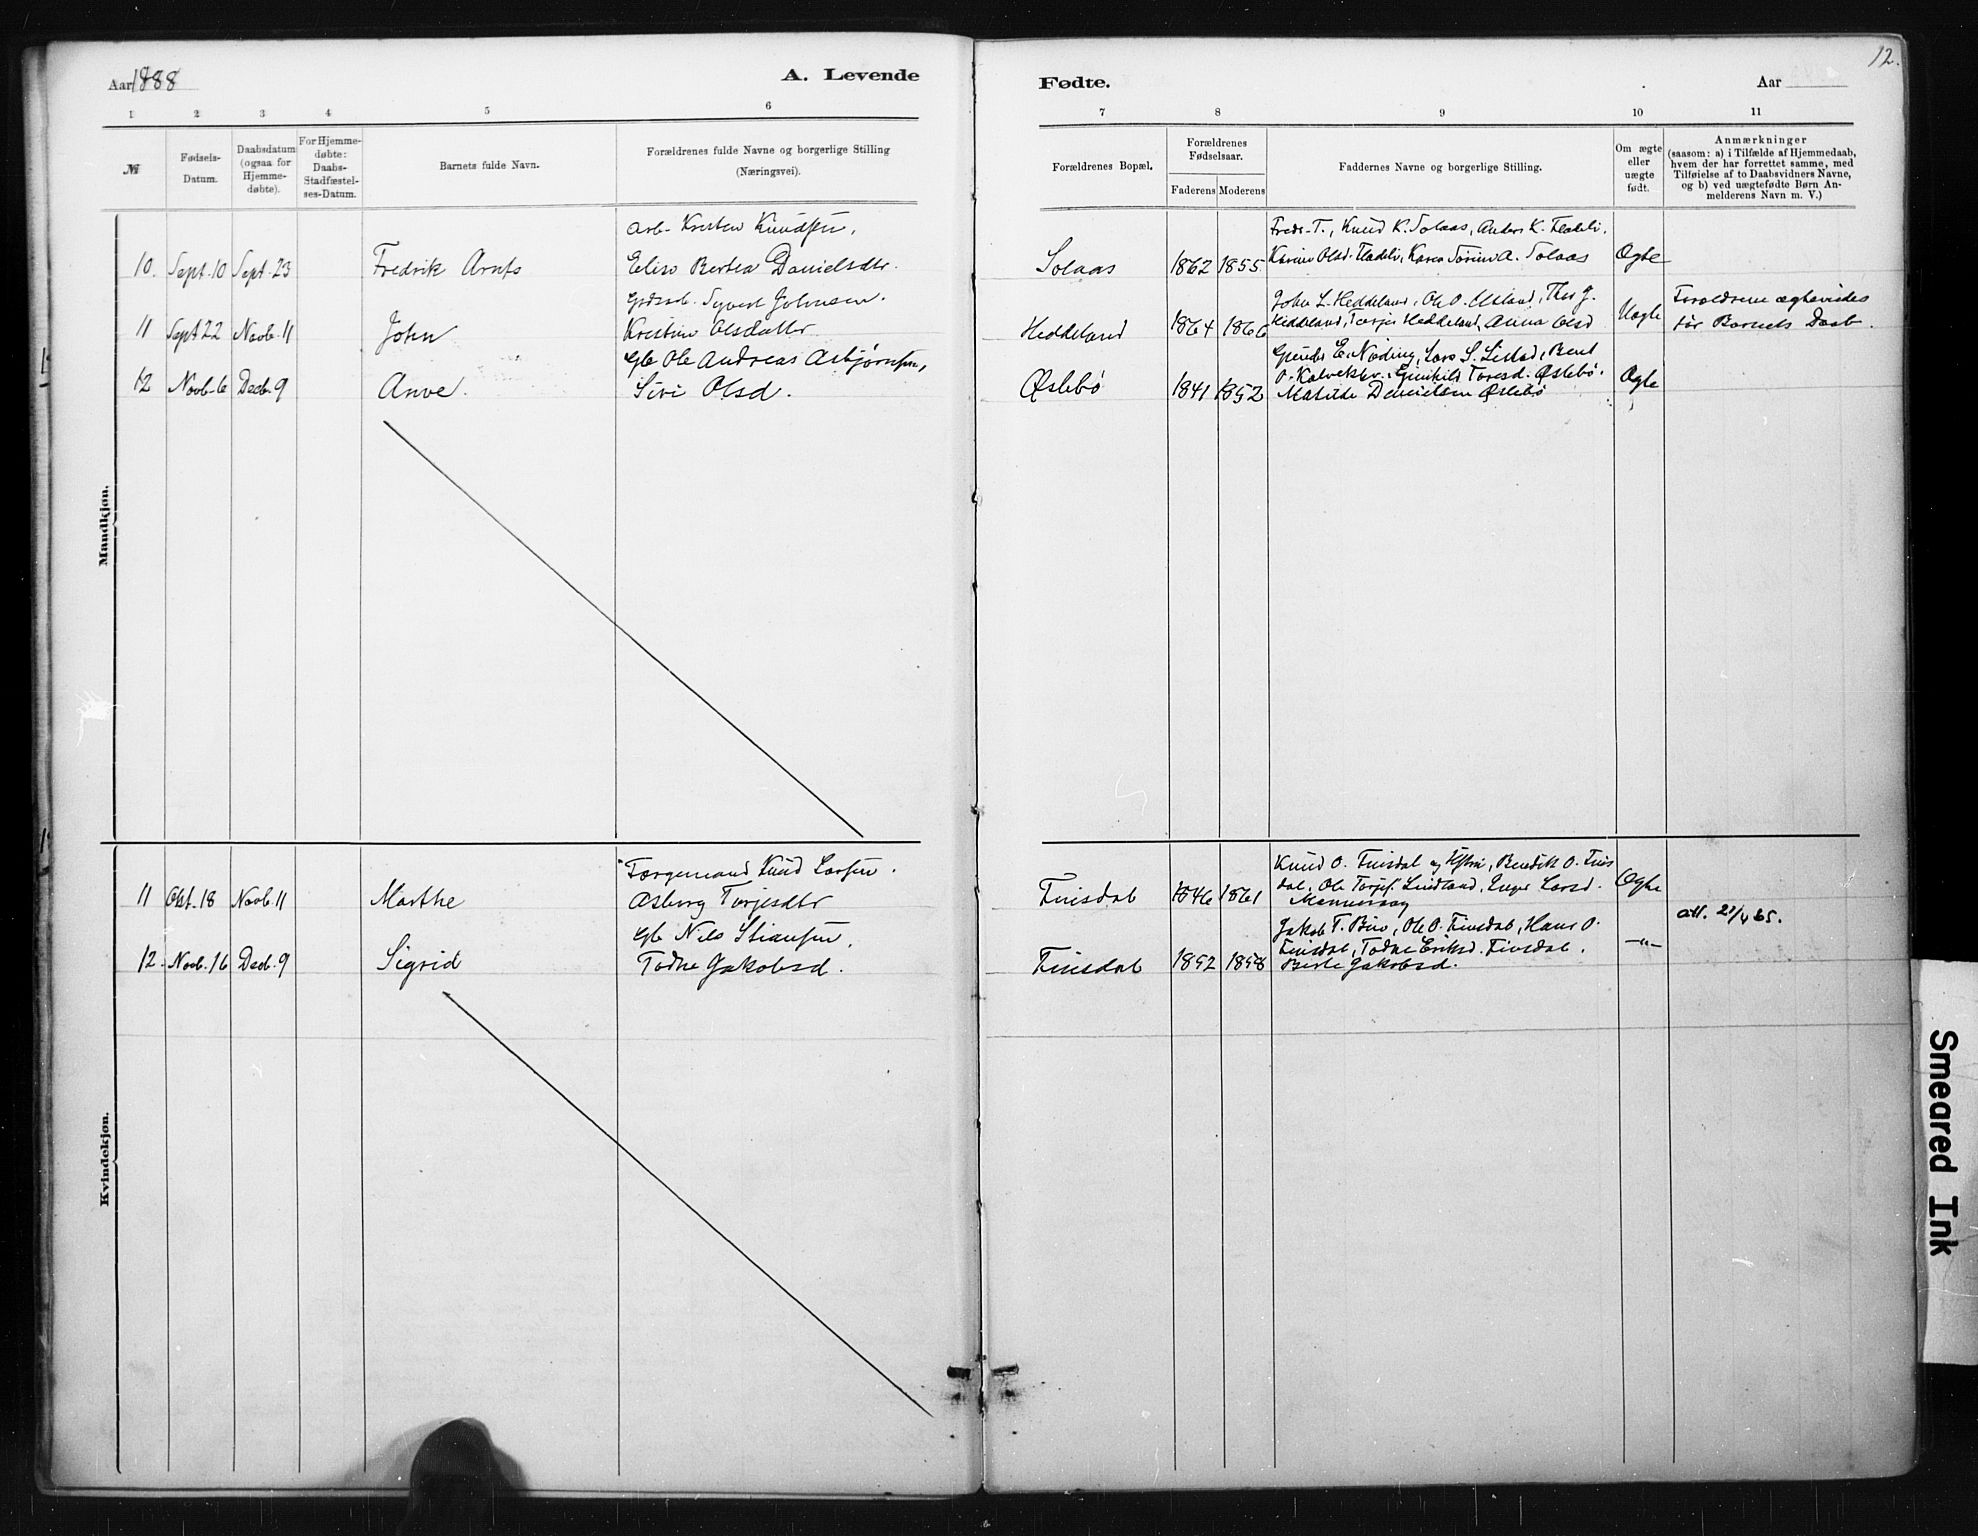 12.
Aar 1888
A. Levende
Fødte.
Aar
1 2 3 4 5 6 7 8 9 10 11
№
Fødsels-
Datum.
Daabsdatum
(ogsaa for
Hjemme-
døbte).
For Hjemme-
døbte:
Daabs-
Stadfæstel-
ses-Datum.
Barnets fulde Navn.
Forældrenes fulde Navne og borgerlige Stilling
(Næringsvei).
Forældrenes Bopæl.
Forældrenes
Fødselsaar.
Faderens Moderens
Faddernes Navne og borgerlige Stilling.
Om ægte
eller
uægte
født.
Anmærkninger
(saasom: a) i Tilfælde af Hjemmedaab,
hvem der har forrettet samme, med
Tilføielse af to Daabsvidners Navne,
og b) ved uægtefødte Børn An-
melderens Navn m. V.)
Mandkjøn.
Arb. Kristen Knudsen,
Fredr. T., Knud K. Solaas, Anders K. Fladeli,
10. Sept. 10 Sept. 23 Fredrik Arnts Elise Bertea Danielsdtr. Solaas 1862 1855 Karine Olsd. Fladeli, Karen Sørine A. Solaas Ægte
Syvert Johnsen.
John L. Heddeland, Ole O. Thor J.
Forældrene ægteviedes
11 Sept 22 Novb. 11 John Kristine Olsdatter Heddeland 1864 1866 Heddeland, Torjer Heddeland, Anna Olsd Uægte før Barnets Daab.
Gb Ole Andreas Asbjørnsen,
Gunder E. Nøding, Lars S. Listad, Bent
12 Novb. 6 Decb. 9 Anve. Siri Olsd. Øslebø 1841 1852 O. Gunhild Toresd. Øslebø. Ægte
Matilde Danielsen Øslebø
Kvindekjøn.
Torgemand Knud Larsen.
Knud O. Finsdal og Hstru, Bendik O. Fins
11 Okt. 18 Novb. 11 Marthe Asborg Torjesdtr Finsdal 1846 1861 dal, Ole Torjes. Lindland, Inger Larsd. Ægte
att. 27/4 65.
Gb Nils Stiansen,
Jakob T. Bue, Ole O. Finsdal, Hans O.
12. Novb. 16 Decb. 9 Sigrid Todne Jakobsd. Finsdal 1852 1858 Finsdal, Todne Eriksd. Finsdal. —"—
Berte Jakobsd.
Smeared Ink